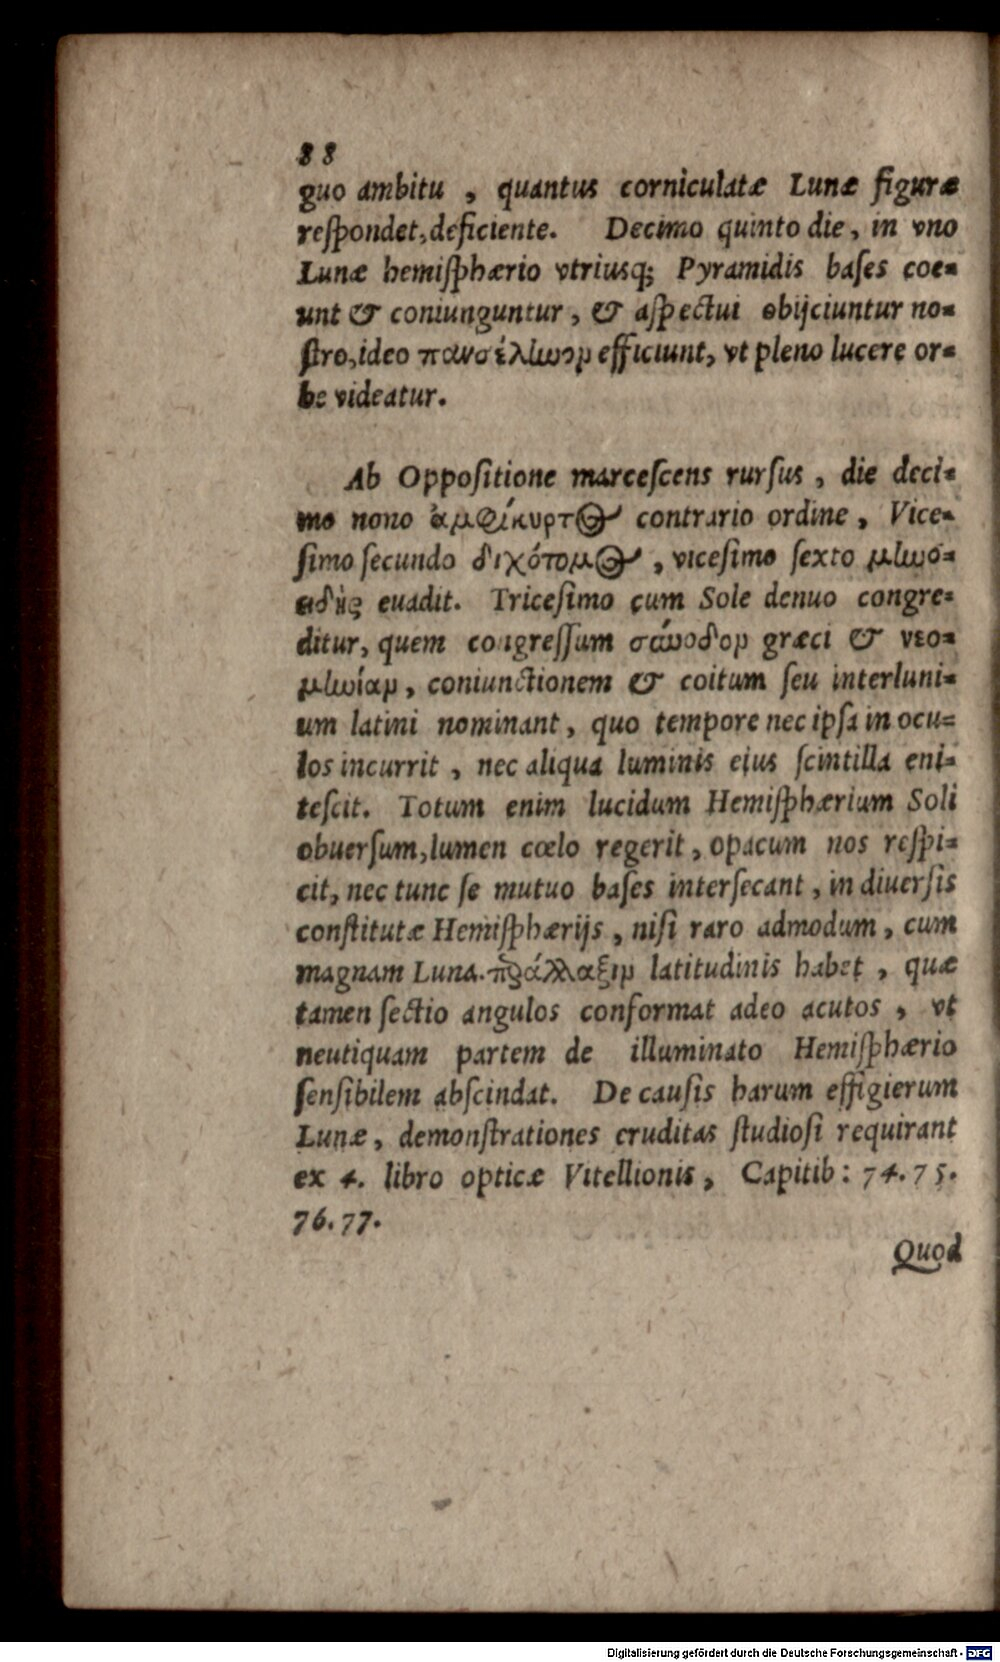 88
guo ambitu , quantus corniculatæ Lunæ figuræ
reſpondet, deficiente. Decimo quinto die, in vno
Lunæ hemiſphærio vtriusq; Pyramidis baſes coe-
unt & coniunguntur, & aſpectui obijciuntur no-
ſtro, ideo πανσέλωυομ efficiunt, vt pleno lucere or-
be videatur.
Ab Oppoſitione marceſcens rurſus, die deci-
mo nono ἀμφίκυρτος contrario ordine, Vice-
ſimo ſecundo διχότομος, viceſimo ſexto μωυο-
ειδὴς euadit. Triceſimo cum Sole denuo congre-
ditur, quem congreſſum σύνοδομ græci & νεο-
μωυίαμ, coniunctionem & coitum ſeu interluni-
um latini nominant, quo tempore nec ipſa in ocu-
los incurrit, nec aliqua luminis eius ſcintilla eni-
teſcit. Totum enim lucidum Hemiſphærium Soli
obuerſum, lumen cœlo regerit, opacum nos reſpi-
cit, nec tunc ſe mutuo baſes interſecant, in diuerſis
conſtitutæ Hemiſphærijs, niſi raro admodum, cum
magnam Luna. παράλλαξιμ latitudinis habet, quæ
tamen ſectio angulos conformat adeo acutos, vt
neutiquam partem de illuminato Hemiſphærio
ſenſibilem abſcindat. De cauſis harum effigierum
Lunæ, demonſtrationes eruditas ſtudioſi requirant
ex 4. libro opticæ Vitellionis, Capitib: 74. 75.
76. 77.
Quod
Digitalisierung gefördert durch die Deutsche Forschungsgemeinschaft - DFG